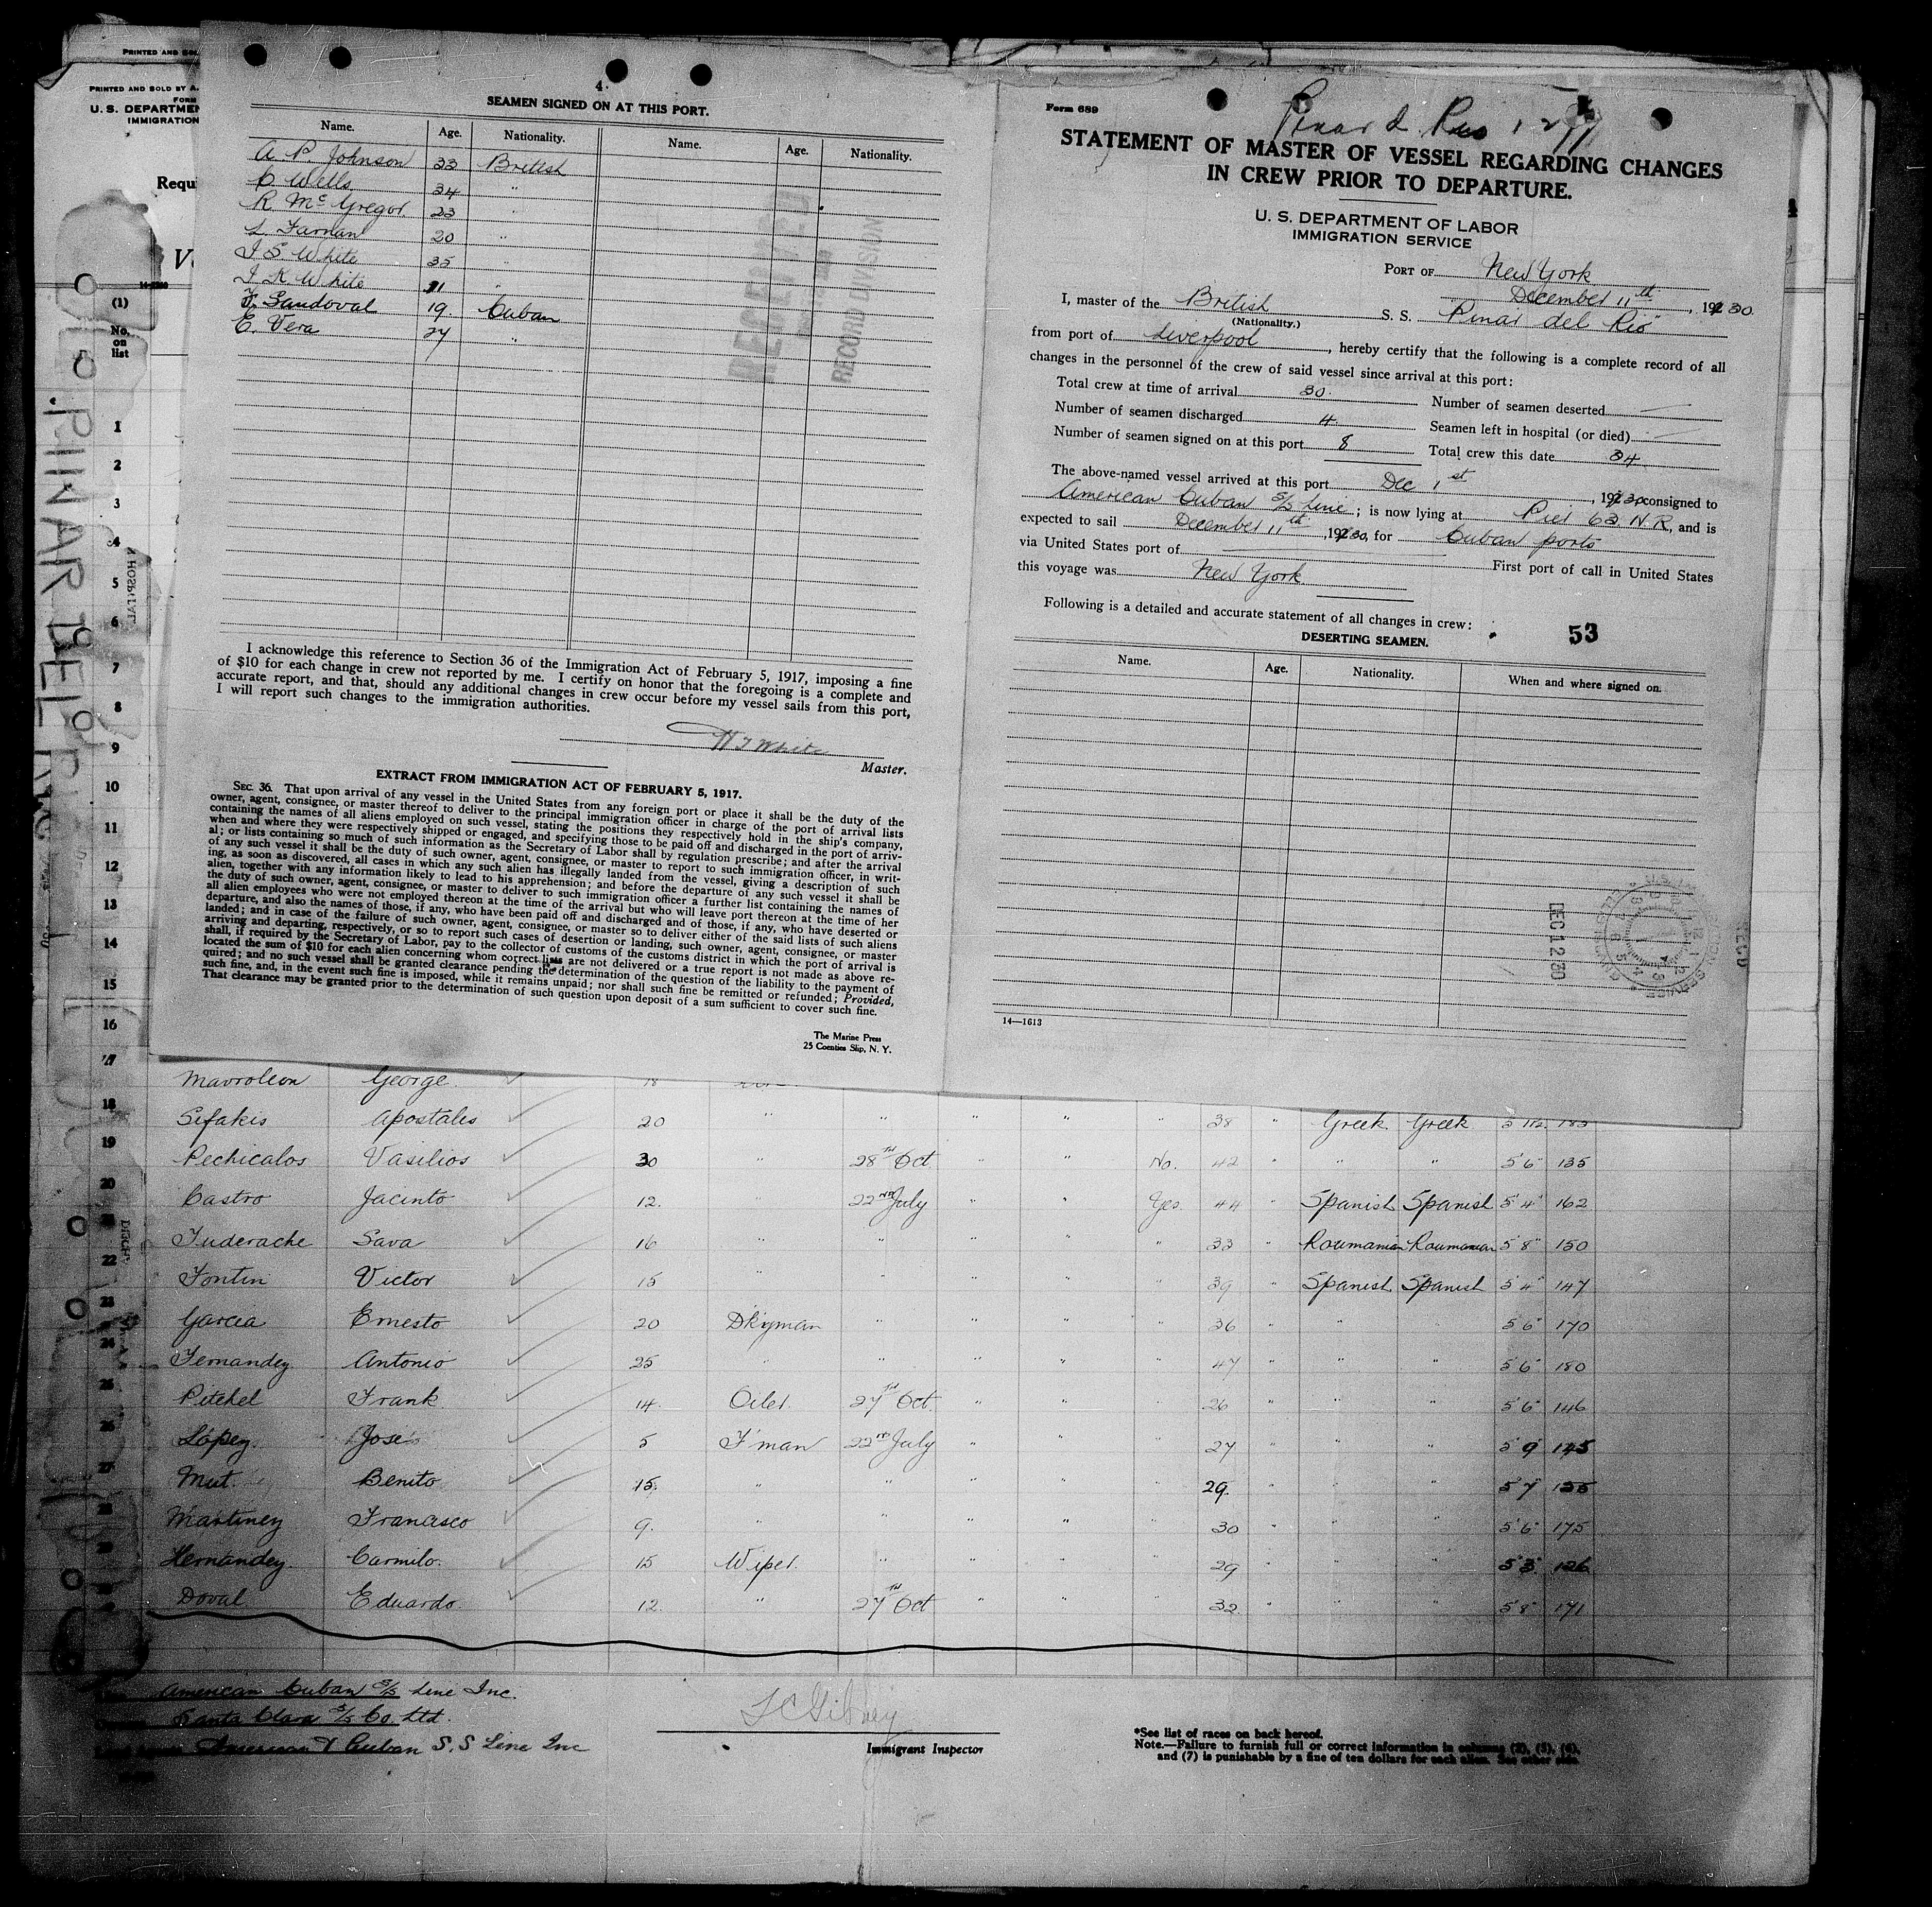 PRINTED AND SOL
PRINTED AND SOLD BY A.
FORM
U. S. DEPARTMEN
IMMIGRATION
Requ
(1)
No.
on
list
PINAR DEL RIO
4
SEAMEN SIGNED ON AT THIS PORT.
Name. Age. Nationality. Name. Age. Nationality.
A. P. Johnson 33 British
C Wells 34 "
R McGregor 23 "
L. Farnan 20 "
J S White 35 "
J K White "
Sandoval 19. Cuban
E. Vera 27 "
RECEIVED
RECORD DIVISION
I acknowledge this reference to Section 36 of the Immigration Act of February 5, 1917, imposing a fine
of $10 for each change in crew not reported by me. I certify on honor that the foregoing is a complete and
accurate report, and that, should any additional changes in crew occur before my vessel sails from this port,
I will report such changes to the immigration authorities.
White
Master.
EXTRACT FROM IMMIGRATION ACT OF FEBRUARY 5, 1917.
SEC. 36. That upon arrival of any vessel in the United States from any foreign port or place it shall be the duty of the
owner, agent, consignee, or master thereof to deliver to the principal immigration officer in charge of the port of arrival lists
containing the names of all aliens employed on such vessel, stating the positions they respectively hold in the ship's company,
when and where they were respectively shipped or engaged, and specifying those to be paid off and discharged in the port of arriv-
al; or lists containing so much of such information as the Secretary of Labor shall by regulation prescribe; and after the arrival
of any such vessel it shall be the duty of such owner, agent, consignee, or master to report to such immigration officer, in writ-
ing, as soon as discovered, all cases in which any such alien has illegally landed from the vessel, giving a description of such
alien, together with any information likely to lead to his apprehension; and before the departure of any such vessel it shall be
the duty of such owner, agent, consignee, or master to deliver to such immigration officer a further list containing the names of
all alien employees who were not employed thereon at the time of the arrival but who will leave port thereon at the time of her
departure, and also the names of those, if any, who have been paid off and discharged and of those, if any, who have deserted or
landed; and in case of the failure of such owner, agent, consignee, or master so to deliver either of the said lists of such aliens
arriving and departing, respectively, or so to report such cases of desertion or landing, such owner, agent, consignee, or master
shall, if required by the Secretary of Labor, pay to the collector of customs of the customs district in which the port of arrival is
located the sum of $10 for each alien concerning whom correct lists are not delivered or a true report is not made as above re-
quired; and no such vessel shall be granted clearance pending the determination of the question of the liability to the payment of
such fine, and, in the event such fine is imposed, while it remains unpaid; nor shall such fine be remitted or refunded; Provided,
That clearance may be granted prior to the determination of such question upon deposit of a sum sufficient to cover such fine.
The Marine Press
25 Coenties Slip, N. Y.
Form 689
Pinar d Rio
STATEMENT OF MASTER OF VESSEL REGARDING CHANGES
IN CREW PRIOR TO DEPARTURE.
U. S. DEPARTMENT OF LABOR
IMMIGRATION SERVICE
PORT OF New York
December 11th, 1930
I, master of the British S. S. "Pinar del Rio"
(Nationality.)
from port of Liverpool, hereby certify that the following is a complete record of all
changes in the personnel of the crew of said vessel since arrival at this port:
Total crew at time of arrival 30. Number of seamen deserted —
Number of seamen discharged 4. Seamen left in hospital (or died) —
Number of seamen signed on at this port 8 Total crew this date 34
The above-named vessel arrived at this port Dec 1st, 1930 consigned to
American Cuban S/S Line; is now lying at Pier 63 N.R, and is
expected to sail December 11th, 1930, for Cuban ports
via United States port of — First port of call in United States
this voyage was New York
Following is a detailed and accurate statement of all changes in crew:
DESERTING SEAMEN. 53
Name. Age. Nationality. When and where signed on.
DEC 12 30
14—1613
1
2
3
4
5
6
7
8
9
10
11
12
13
14
15
16
17
Mavroleon George 18
18 Sifakis Apostales 20 " " " " " 38 " Greek Greek
19 Pechicalos Vasilios 30 " 28TH Oct " " No. 42 " " " 5'6" 135
20 Castro Jacinto 12. " 22ND July " " Yes 44 " Spanish Spanish 5'4" 162
21 Tuderache Sava 16 " " " " " 33 " Roumanian Roumanian 5'8" 150
22 Fontin Victor 15 " " " " " 39 " Spanish Spanish 5'4" 147
23 Garcia Ernesto 20 Dkyman " " " " 36 " " " 5'6" 170
24 Fernandez Antonio 25 " " " " " 47 " " " 5'6" 180
25 Pitchel Frank 14. Oiler. 27TH Oct. " " " 26 " " " 5'6" 146
26 Lopez Jose 5 F'man 22ND July " " " 27 " " " 5'9"
27 Mut. Benito 15. " " " " " 29. " " " 5'7"
28 Martinez Francisco 9. " " " " " 30 " " " 5'6" 175
29 Hernandez. Carmilo. 15 Wiper. " " " " 29 " " " 5'3" 126
Doval Eduardo. 12. " 27TH Oct " " " 32. " " " 5'8" 171
American Cuban S/S Line Inc.
Santa Clara S/S Co. Ltd.
American & Cuban S.S Line Inc
Immigrant Inspector
*See list of races on back hereof.
Note.—Failure to furnish full or correct information in columns (2), (5), (6),
and (7) is punishable by a fine of ten dollars for each alien. See other side.